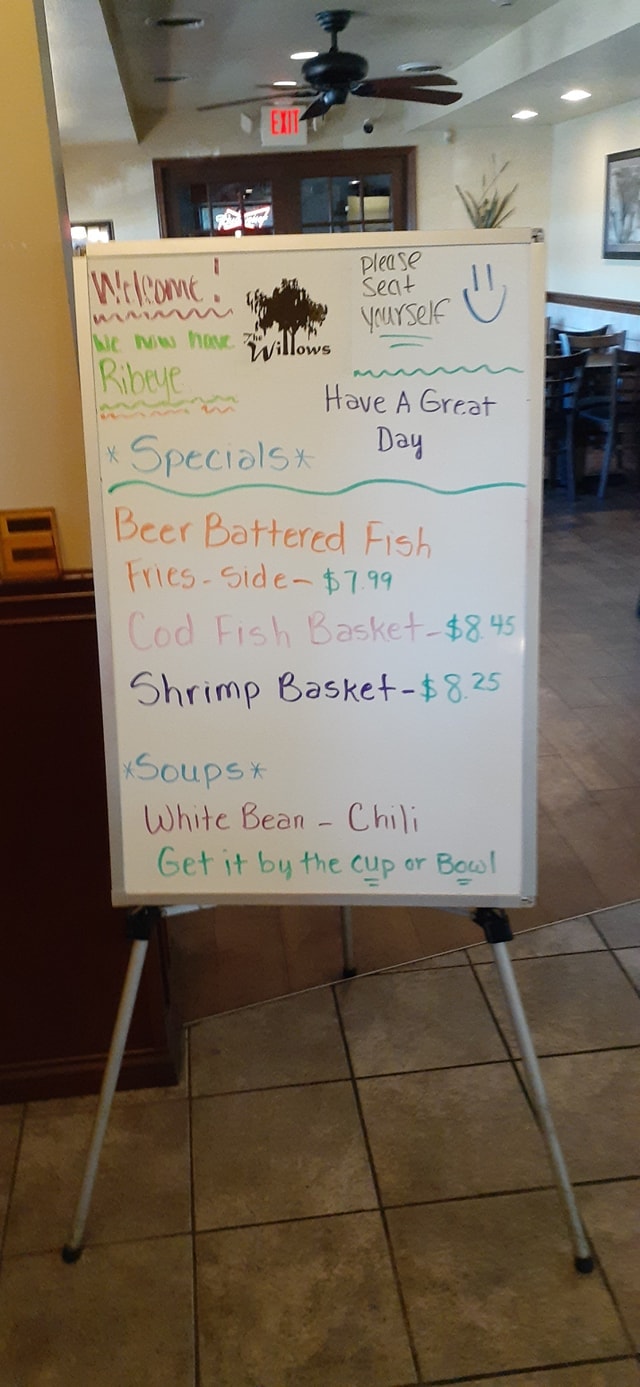 EXIT
Welcome!
We now have
Ribeye
The Willows
please
seat
yourself
Have A Great
Day
*Specials*
Beer Battered Fish
Fries - Side - $7.99
Cod Fish Basket - $8.45
Shrimp Basket - $8.25
*Soups*
White Bean - Chili
Get it by the cup or Bowl